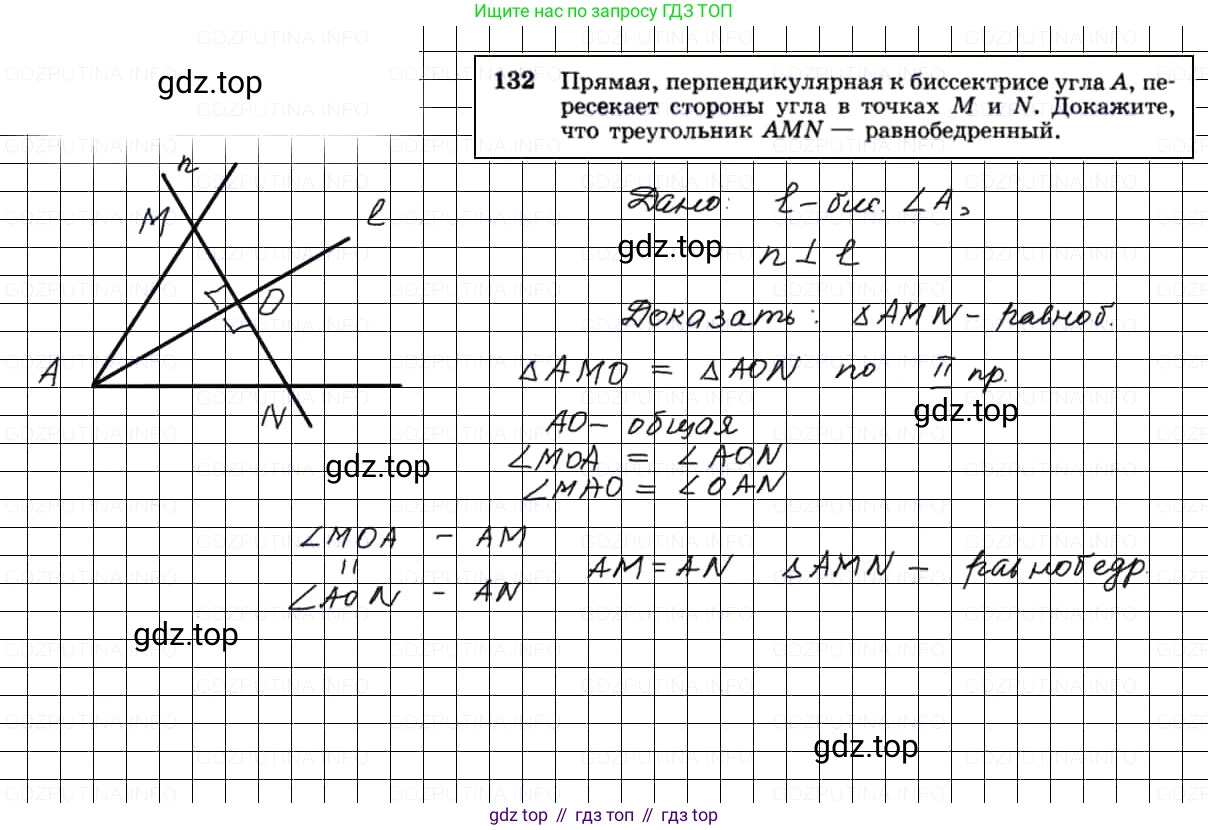 Ищите нас по запросу ГДЗ ТОП
132 Прямая, перпендикулярная к биссектрисе угла A, пе-
ресекает стороны угла в точках M и N. Докажите,
что треугольник AMN — равнобедренный.
gdz.top
n
M
l
O
A
N
Дано: l - бис. ∠A,
gdz.top
n ⊥ l
Доказать: △AMN - равноб.
△AMO = △AON по II пр.
gdz.top
AO - общая
∠MOA = ∠AON
gdz.top
∠MAO = ∠OAN
∠MOA - AM
||
∠AON - AN
AM = AN △AMN - равнобедр.
gdz.top
gdz.top
GDZPUTINA.INFO
gdz top // гдз топ // гдз top